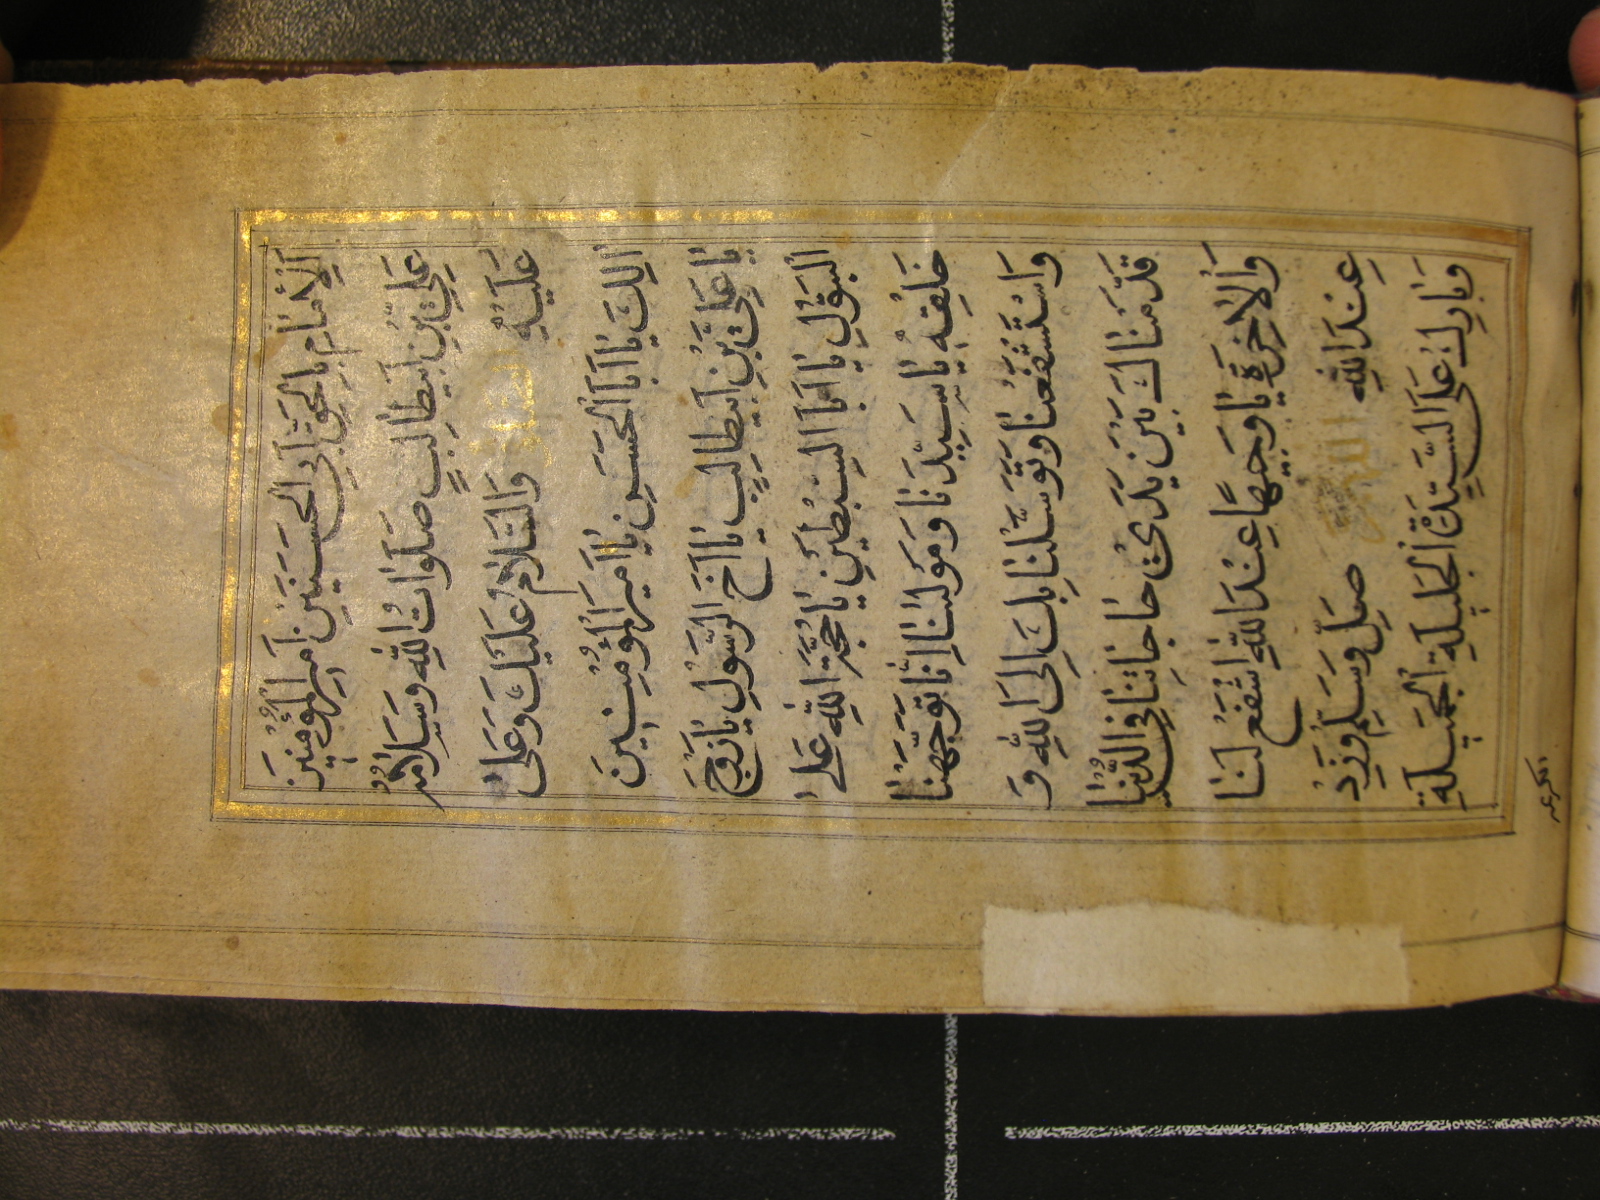 اَلْاِمَامِ بِالْحَقِّ اَبِي الْحَسَنَيْنِ اَمِيْرِ الْمُؤْمِنِيْنَ
عَلِيِّ بْنِ اَبِيْطَالِبٍ صَلَوَاتُ اللهِ وَسَلَامُهُ
عَلَيْهِ وَالسَّلَامُ عَلَيْكَ وَعَلٰى
اٰلِكَ يَا اَبَا الْحَسَنِ يَا اَمِيْرَ الْمُؤْمِنِيْنَ
يَا عَلِيَّ بْنَ اَبِيْطَالِبٍ يَا اَخَ الرَّسُوْلِ يَا زَوْجَ
الْبَتُوْلِ يَا اَبَا السِّبْطَيْنِ يَا حُجَّةَ اللهِ عَلٰى
خَلْقِهٖ يَا سَيِّدَنَا وَمَوْلٰنَا اِنَّا تَوَجَّهْنَا
وَاسْتَشْفَعْنَا وَتَوَسَّلْنَا بِكَ اِلَى اللهِ وَ
قَدَّمْنَاكَ بَيْنَ يَدَيْ حَاجَاتِنَا فِي الدُّنْيَا
وَالْاٰخِرَةِ يَا وَجِيْهًا عِنْدَ اللهِ اشْفَعْ لَنَا
عِنْدَ اللهِ اللهم صَلِّ وَسَلِّمْ وَزِدْ
وَبَارِكْ عَلَى السَّيِّدَةِ الْجَلِيْلَةِ الْجَمِيْلَةِ
الكريمه